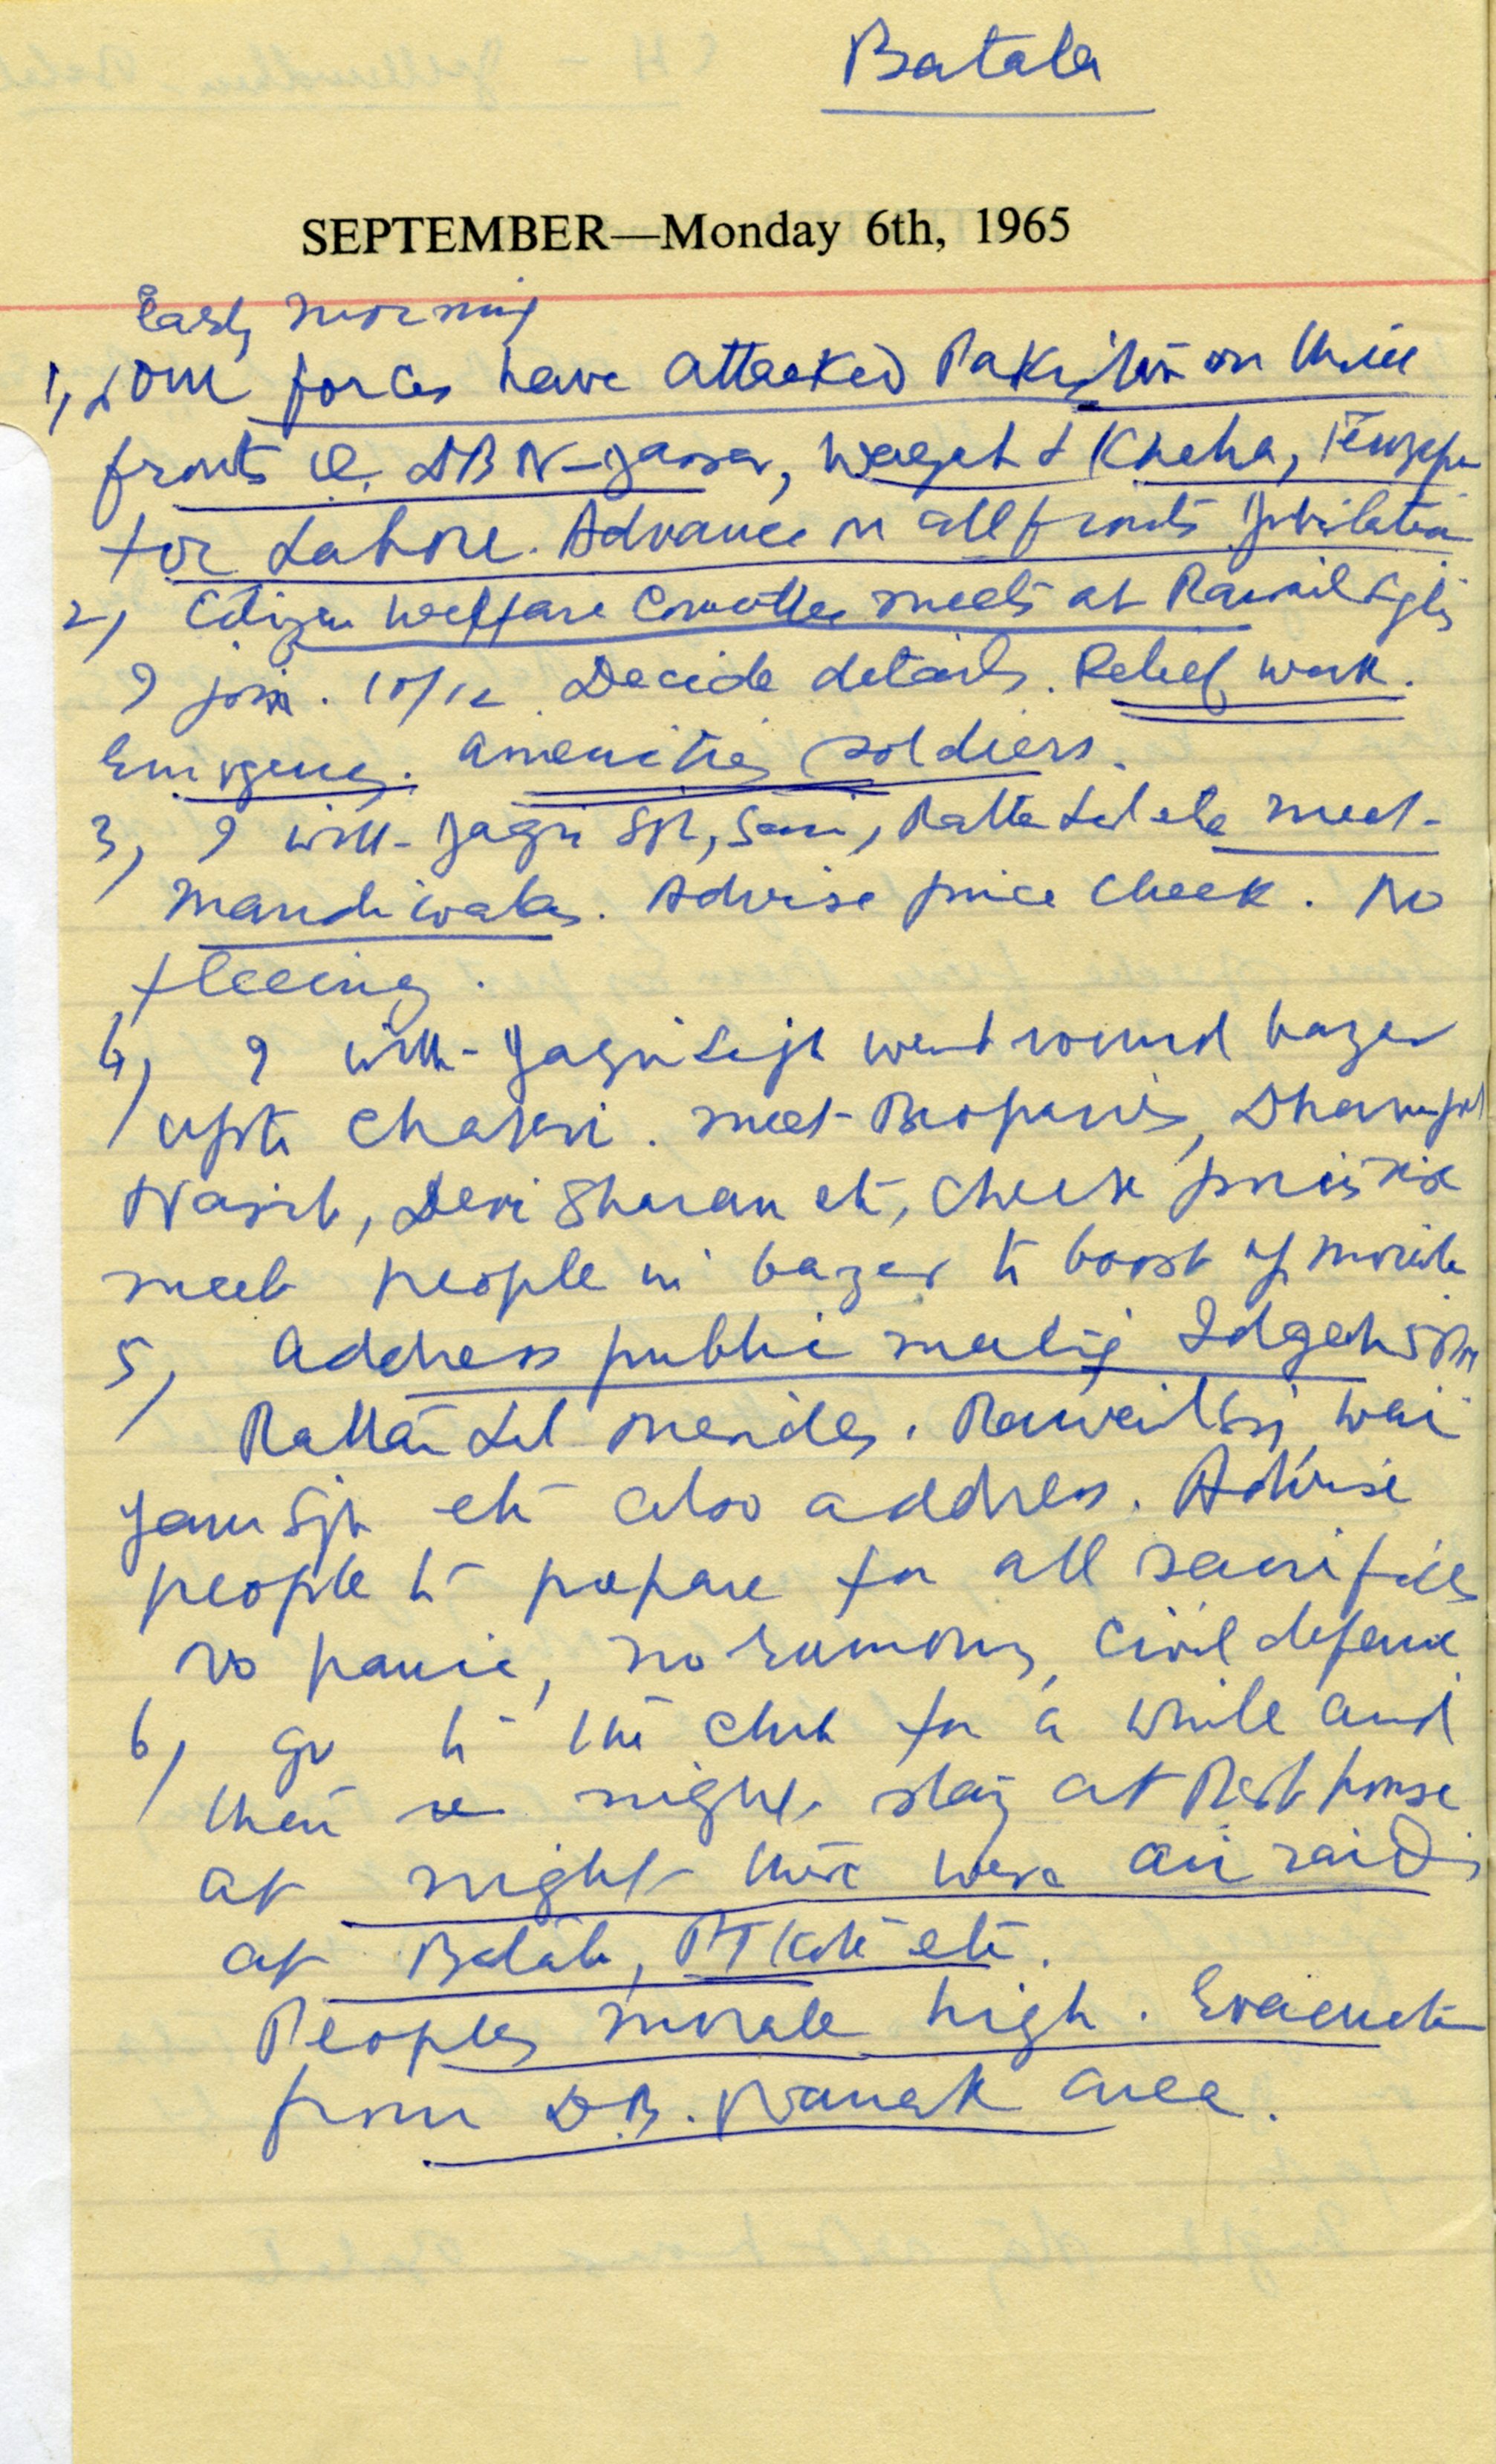 Batala
SEPTEMBER—Monday 6th, 1965
Early morning
1, Our forces have attacked Pakistan on three
fronts ie. DBN-Jassar, Wagah & Khaha,
for Lahore. Advance on all fronts Jubilation
2, Citizen Welfare Committee meets at Rawail Singh's
I join. 10/12. Decide details. Relief work.
Emergency. Amenities soldiers.
3, I with Jagir Sgh, Saini, Rattan Lal etc meet
Mandiwalas. Advise price check. No
fleeing.
4, I with Jagir Singh went round bazar
upto Chakri. Meet Beoparis,
Devi Sharan etc, check prices rise
meet people in bazar to boost up morale
5, Address public meeting Idgah 5 PM
Rattan Lal presides. Rawail Sgh,
Sgh etc also address. Advise
people to prepare for all sacrifices
No panic, no rumours, civil defence
6, go to the club for a while and
then night stay at Rest house
at night there were air raids
at Batala, PTKote etc.
Peoples morale high. Evacuation
from D.B. Nanak area.